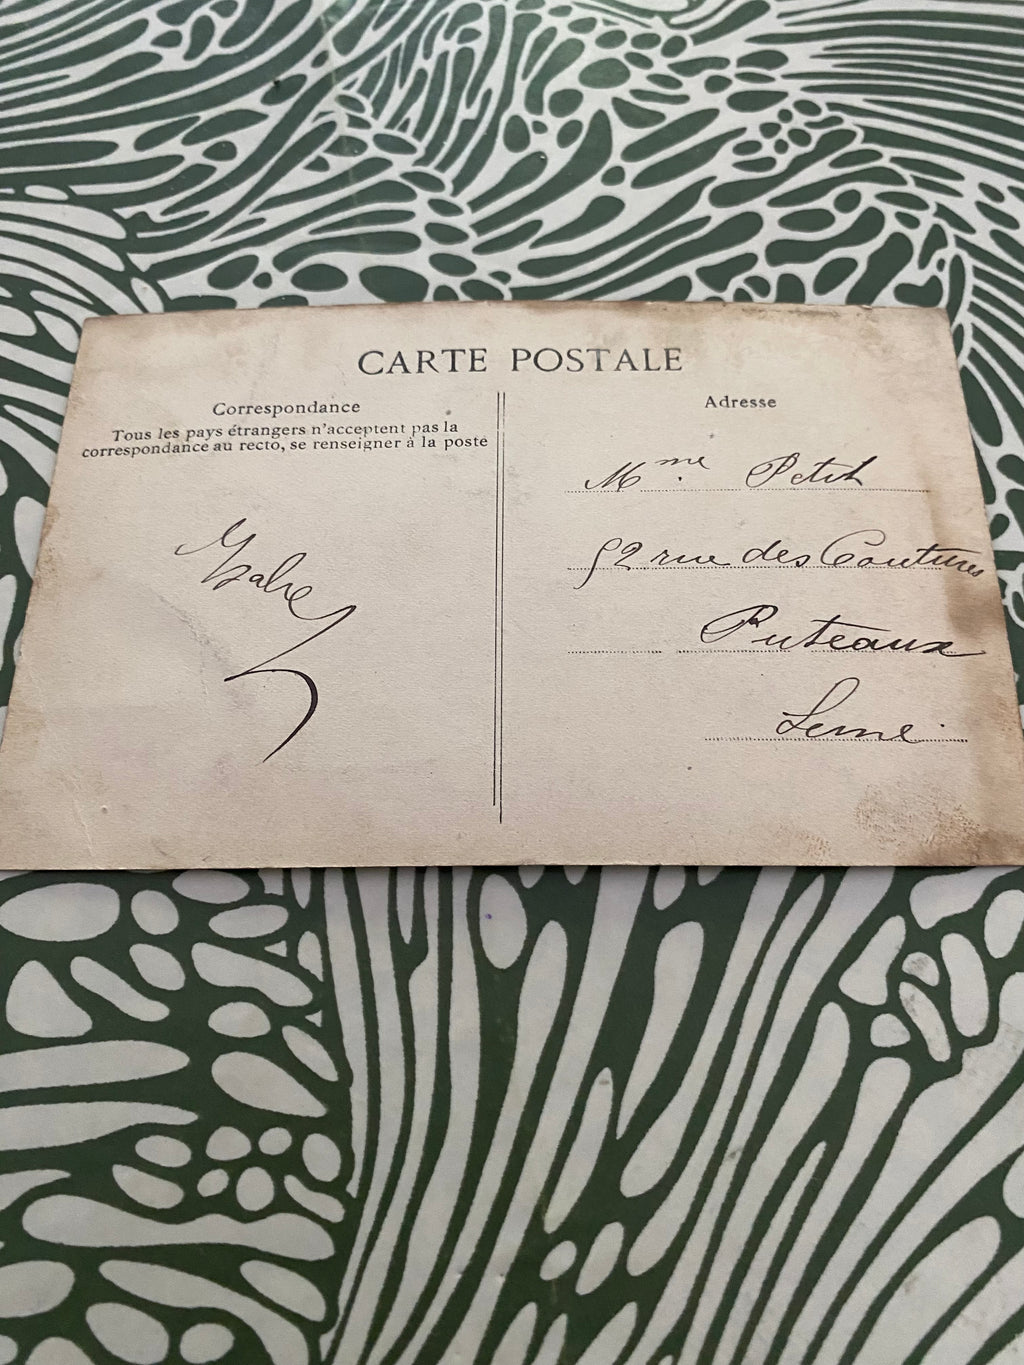 CARTE POSTALE
Correspondance
Tous les pays étrangers n'acceptent pas la
correspondance au recto, se renseigner à la poste
Adresse
Mme Petit
52 rue des Coutures
Puteaux
Seine